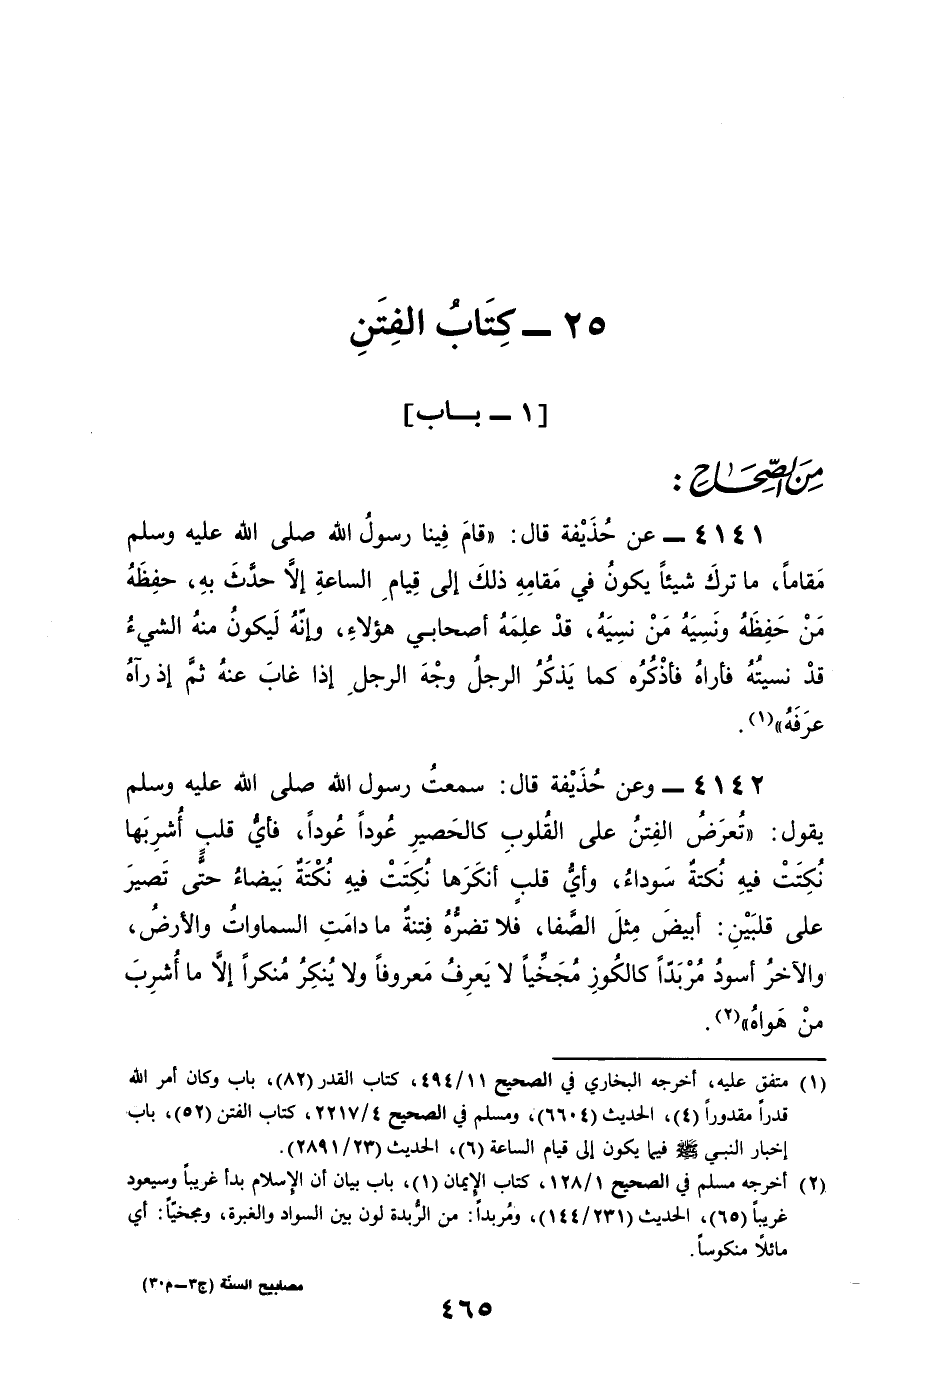 ٢٥ ــ كِتَابُ الفِتَنِ
[١ ــ بـــاب]
مِنَ الصِّحَاحِ :
٤١٤١ ــ عن حُذَيْفة قال: «قامَ فِينا رسولُ الله صلى الله عليه وسلم
مَقاماً، ما تركَ شيئاً يكونُ في مَقامِهِ ذلكَ إلى قِيامِ الساعةِ إلَّا حدَّثَ بهِ، حفِظَهُ
مَنْ حَفِظَهُ ونَسِيَهُ مَنْ نسِيَهُ، قدْ علِمَهُ أصحابـي هؤلاءِ، وإنّهُ لَيكونُ منهُ الشيءُ
قدْ نسيتُهُ فأراهُ فأذْكُرُه كما يَذكُرُ الرجلُ وجْهَ الرجلِ إذا غابَ عنهُ ثمَّ إذ رآهُ
عرَفَهُ»(١).
٤١٤٢ ــ وعن حُذَيْفة قال: سمعتُ رسول الله صلى الله عليه وسلم
يقول: «تُعرَضُ الفِتنُ على القُلوبِ كالحَصيرِ عُوداً عُوداً، فأيُّ قلبٍ أُشرِبَها
نُكِتَتْ فيهِ نُكتةٌ سَوداءُ، وأيُّ قلبٍ أنكَرَها نُكِتَتْ فيهِ نُكْتَةٌ بَيضاءُ حتَّى تَصيرَ
على قلبَيْنِ: أبيضَ مِثلَ الصَّفا، فلا تضرُّهُ فِتنةٌ ما دامَتِ السماواتُ والأرضُ،
والآخرُ أسودُ مُرْبَدّاً كالكُوزِ مُجَخِّياً لا يَعرِفُ مَعروفاً ولا يُنكِرُ مُنكراً إلَّا ما أُشرِبَ
منْ هَواهُ»(٢).
(١) متفق عليه، أخرجه البخاري في الصحيح ٤٩٤/١١، كتاب القدر (٨٢)، باب وكان أمر الله
قدراً مقدوراً (٤)، الحديث (٦٦٠٤)، ومسلم في الصحيح ٢٢١٧/٤، كتاب الفتن (٥٢)، باب
إخبار النبـي ﷺ فيما يكون إلى قيام الساعة (٦)، الحديث (٢٨٩١/٢٣).
(٢) أخرجه مسلم في الصحيح ١٢٨/١، كتاب الإيمان (١)، باب بيان أن الإسلام بدأ غريباً وسيعود
غريباً (٦٥)، الحديث (١٤٤/٢٣١)، ومُربداً: من الرُّبدة لون بين السواد والغبرة، ومجخيّاً: أي
مائلًا منكوساً.
مصابيح السنّة (ج٣ــ م٣٠)
٤٦٥